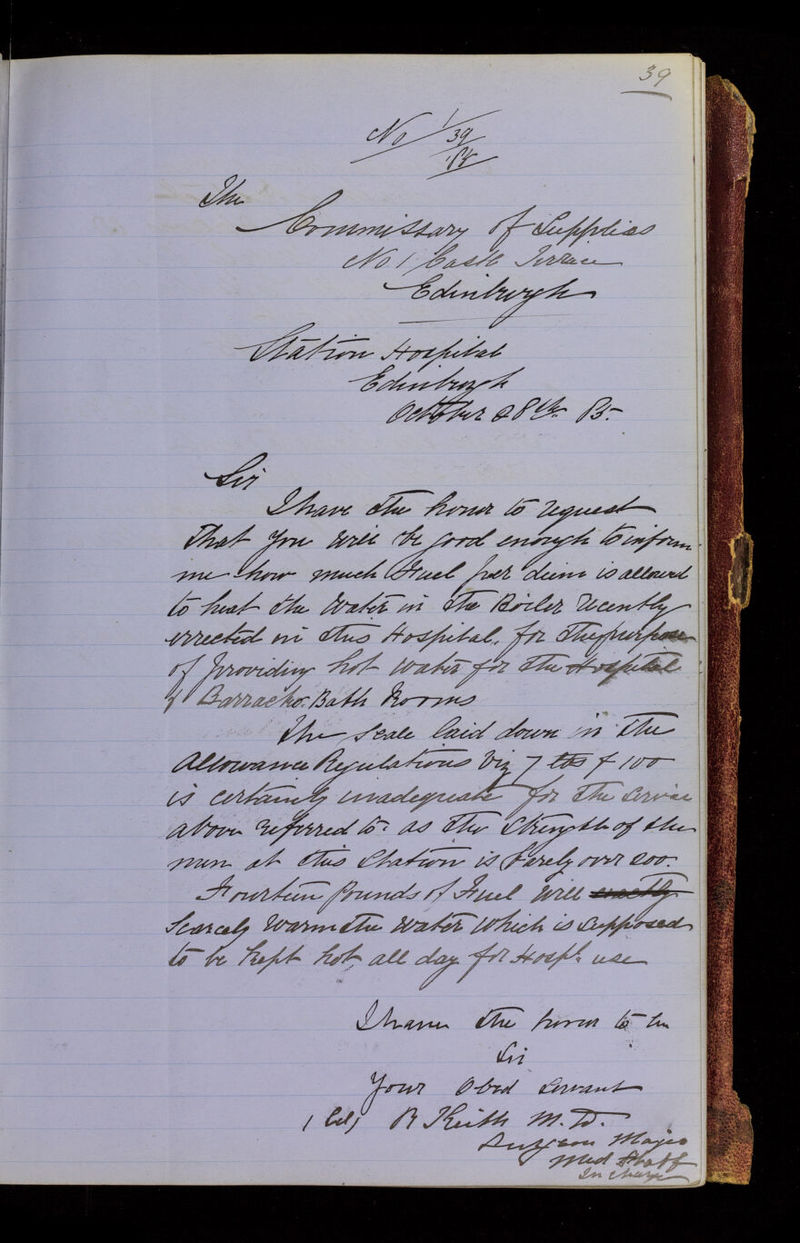 39
No 1/39/85
The
Commissary of Supplies
No 1 Castle Terrace
Edinburgh
Station Hospital
Edinburgh
October 28th 85
Sir
I have the honor to request
that you will be good enough to inform
me how much Fuel per diem is allowed
to heat the water in the Boiler recently
errected in this Hospital, for the purpose
of providing hot water for the Hospital
& Barracks. Bath Rooms
The scale laid down in the
Allowance Regulations Viz 7 lbs + 100
is certainly inadequate for the service
above referred to. as the strength of the
men at this Station is barely over 200.
Fourteen pounds of Fuel will
scarcely warm the water which is supposed
to be kept hot, all day for Hospl. use
I have the honor to be
Sir
Your Obed Servant
R Keith M.D.
Surgeon Major
Med Staff
In Charge